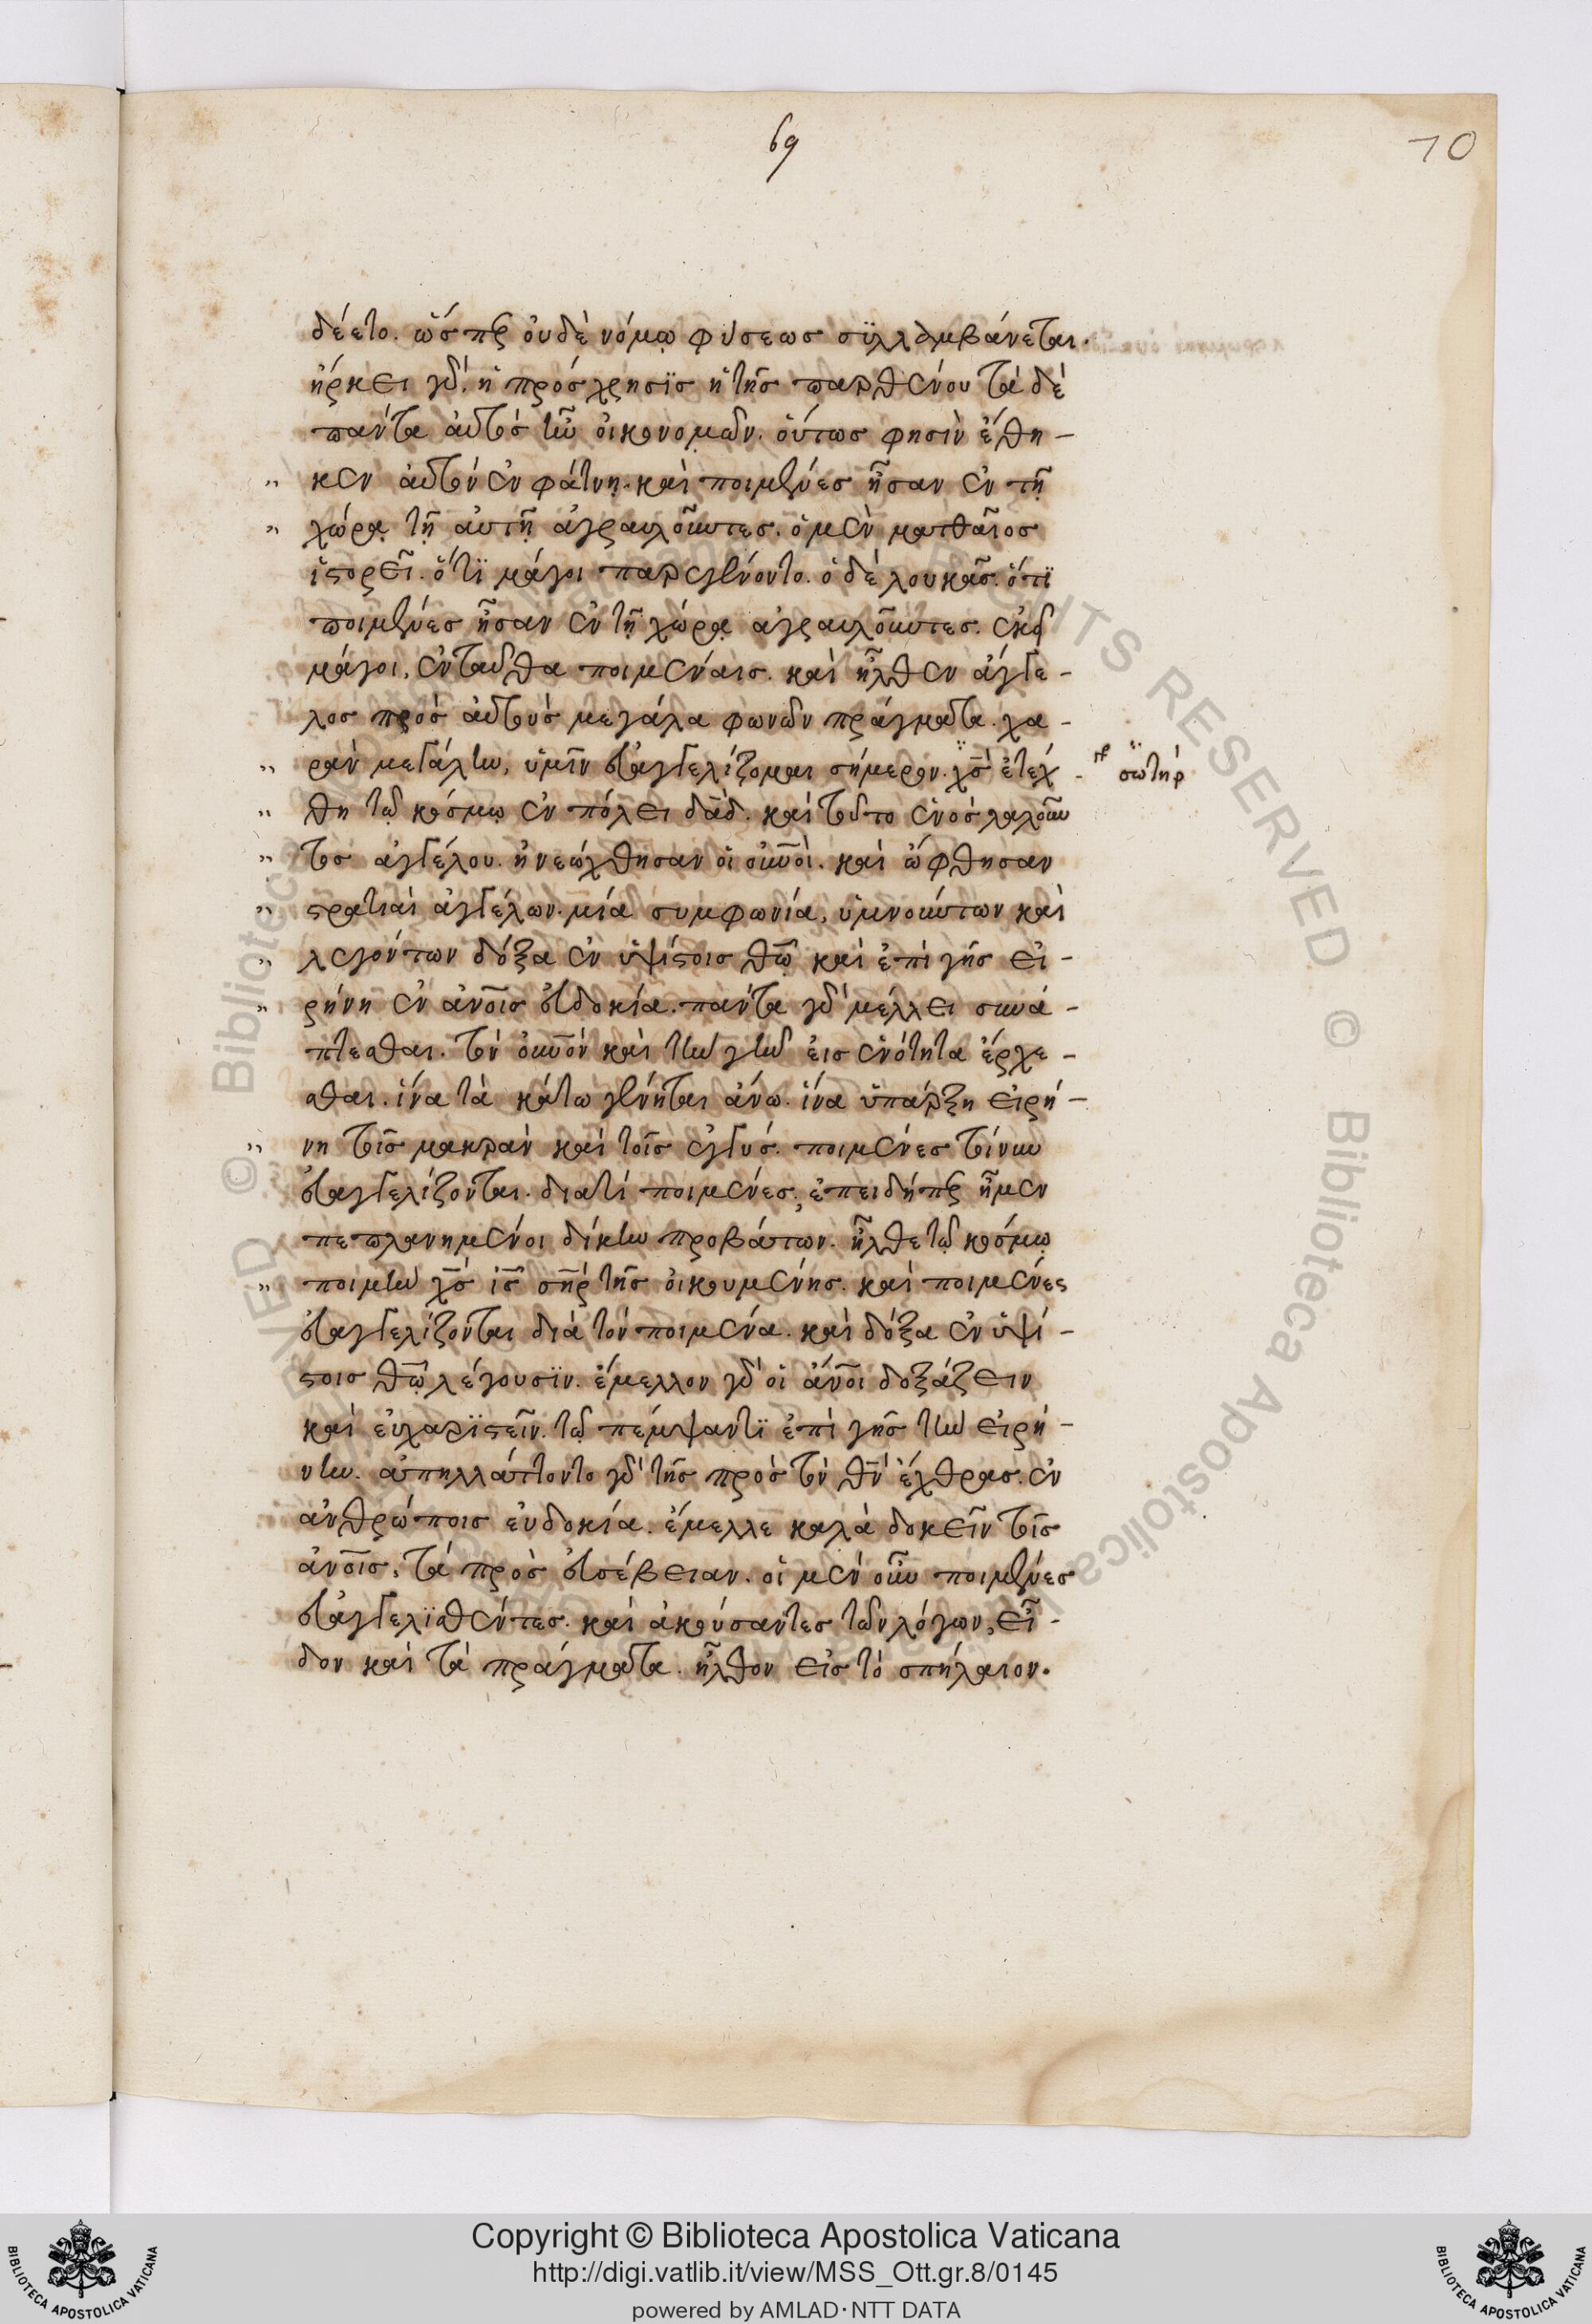 69
10
δέετο. ὥσπερ οὐδὲ νόμῳ φύσεως συλλαμβάνεται.
ἤρκει γὰρ ἡ πρόσχρησις ἡ τῆς παρθένου τὰ δὲ
πάντα αὐτὸς ἦν οἰκονομῶν. οὕτως φησὶν ἔθη-
κεν αὐτὸν ἐν φάτνῃ. καὶ ποιμένες ἦσαν ἐν τῇ
χώρᾳ τῇ αὐτῇ ἀγραυλοῦντες. ὁ μὲν ματθαῖος
ἱστορεῖ. ὅτι μάγοι παρεγένοντο. ὁ δὲ λουκᾶς. ὅτι
ποιμένες ἦσαν ἐν τῇ χώρᾳ ἀγραυλοῦντες. ἐκεῖ
μάγοι, ἐνταῦθα ποιμέναις. καὶ ἦλθεν ἄγγε-
λος πρὸς αὐτοὺς μεγάλα φωνῶν πράγματα. χα-
ρὰν μεγάλην, ὑμῖν εὐαγγελίζομαι σήμερον. χς ἐτέχ-
σωτήρ
θη τῷ κόσμῳ ἐν πόλει δαδ. καὶ τοῦτο ἑνὸς λαλοῦν
τος ἀγγέλου. ἠνεώχθησαν οἱ οὐνοὶ. καὶ ὤφθησαν
στρατιαὶ ἀγγέλων. μία συμφωνία, ὑμνούντων καὶ
λεγόντων δόξα ἐν ὑψίστοις θῶ καὶ ἐπὶ γῆς εἰ-
ρήνη ἐν ἀνοις εὐδοκία. πάντα γὰρ μέλλει συνά-
πτεσθαι. τὸν οὐνὸν καὶ τὴν γῆν εἰς ἑνότητα ἔρχε-
σθαι. ἵνα τὰ κάτω γένηται ἄνω. ἵνα ὑπάρξη εἰρή-
νη τοῖς μακρὰν καὶ τοῖς ἐγγύς. ποιμένες τίνυν
εὐαγγελίζονται. διατί ποιμένες; ἐπειδήπερ ἦμεν
πεπλανημένοι δίκην προβάτων. ἦλθε τῷ κόσμῳ
ποιμὴν χς ις σηρ τῆς οἰκουμένης. καὶ ποιμένες
εὐαγγελίζονται διὰ τὸν ποιμένα. καὶ δόξα ἐν ὑψί-
στοις θῷ λέγουσιν. ἔμελλον γὰρ οἱ ἄνοι δοξάζειν
καὶ εὐχαριστεῖν. τῷ πέμψαντι ἐπὶ γῆς τὴν εἰρή-
νην. ἀπηλλάττοντο γὰρ τῆς πρὸς τὸν θν ἔχθρας. ἐν
ἀνθρώποις εὐδοκία. ἔμελλε καλὰ δοκεῖν τοῖς
ἀνοις, τὰ πρὸς εὐσέβειαν. οἱ μὲν οὖν ποιμένες
εὐαγγελισθέντες. καὶ ἀκούσαντες τῶν λόγων, εἶ-
δον καὶ τὰ πράγματα. ἦλθον εἰς τὸ σπήλαιον.
© Biblioteca Apostolica Vaticana. ALL RIGHTS RESERVED
Copyright © Biblioteca Apostolica Vaticana
http://digi.vatlib.it/view/MSS_Ott.gr.8/0145
powered by AMLAD·NTT DATA
BIBLIOTECA APOSTOLICA VATICANA
BIBLIOTECA APOSTOLICA VATICANA